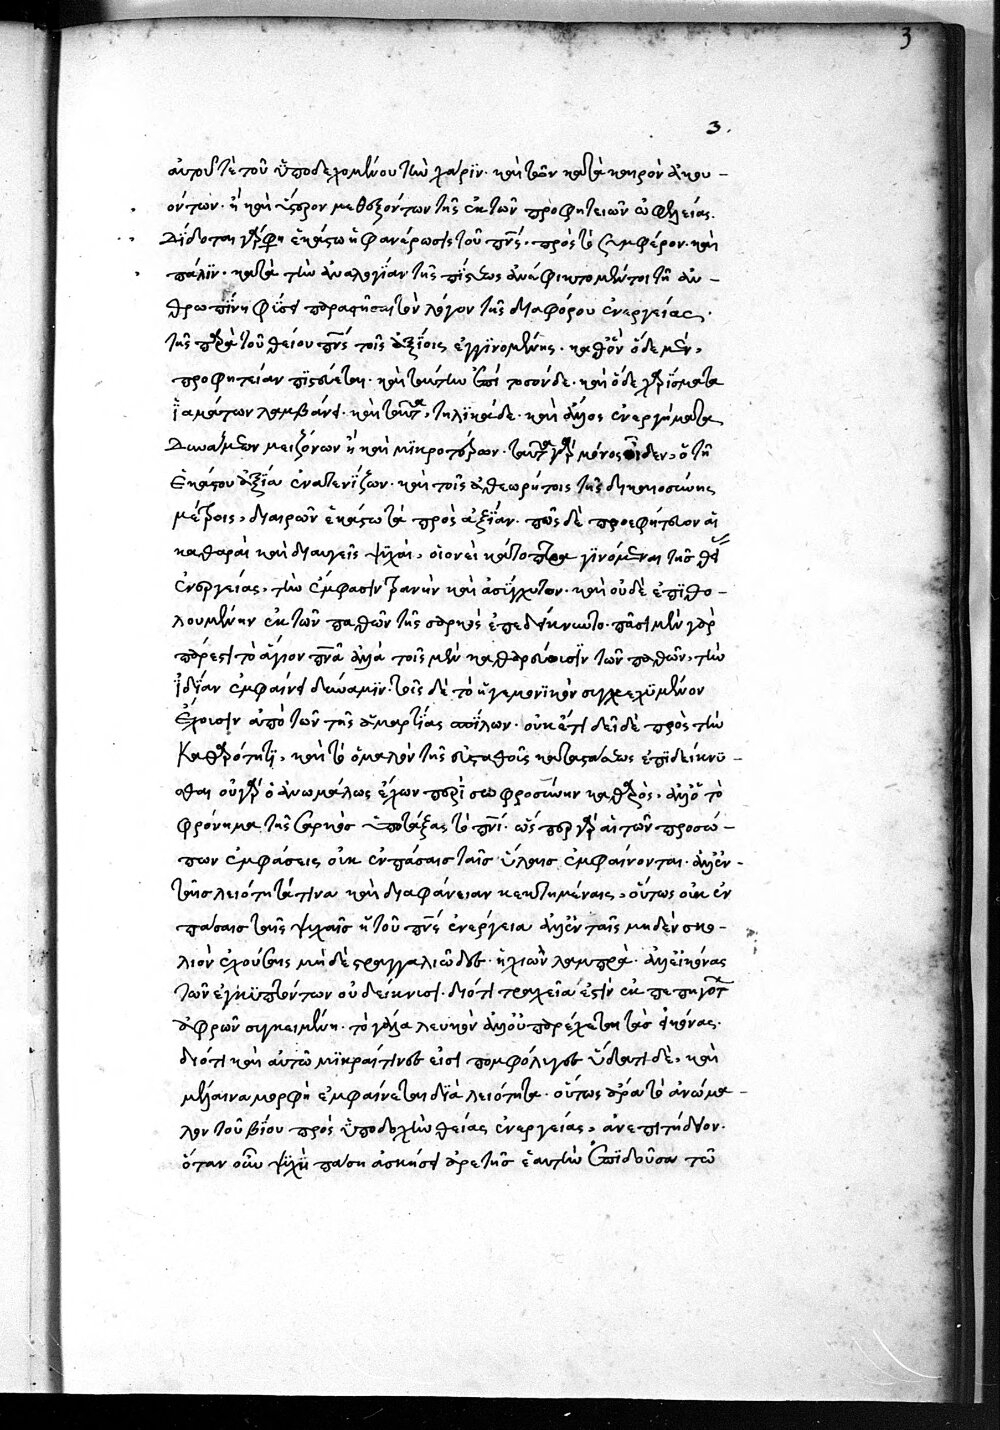 3
3.
αὐτοῦ τὲ τοῦ ὑποδεχομένου τὴν χάριν· καὶ τῶν κατὰ καιρὸν ἀκου-
όντων· ἢ καὶ ὕστερον μετεξόντων τῆς ἐκ τῶν προφητειῶν ὠφελείας.
Δίδοται γάρ φη ἑκάστω ἡ φανέρωσις τοῦ πνς, πρὸς τὸ συμφέρον· καὶ
πάλιν· κατὰ τὴν ἀναλογίαν τῆς πίστεως ἀνάφικτο μέντοι τῆ ἀν-
θρωπίνη φύσει παραστῆσαι τὸν λόγον τῆς διαφόρου ἐνεργείας·
τῆς παρὰ τοῦ θείου πνς τοῖς ἀξίοις ἐγγινομένης· καθ' ὃν ὅδε μὲν,
προφητείαν πιστεύεται· καὶ ταύτην ἐπὶ τοσόνδε· καὶ ὅδε χαρίσματα
ἰαμάτων λαμβάνει· καὶ ταῦτα, τηλικάδε· καὶ ἄλλος ἐνεργήματα
Δυνάμεων μειζόνων ἢ καὶ μικροτέρων· ταῦτα γὰρ μόνος οἶδεν, ὁ τῆ
ἑκάστου ἀξία ἐνατενίζων· καὶ τοῖς ἀθεωρήτοις τῆς δικαιοσύνης
μέτροις, διαιρῶν ἑκάστω τὰ πρὸς ἀξίαν· πῶς δὲ προεφήτευον αἱ
καθαραὶ καὶ διαυγεῖς ψυχαὶ, οἱονεὶ κάτοπτρα γινόμεναι τῆς θεί
ἐνεργείας, τὴν ἔμφασιν τρανὴν καὶ ἀσύγχυτον· καὶ οὐδὲ ἐπιθο-
λουμένην ἐκ τῶν παθῶν τῆς σαρκὸς ἐπεδείκνυντο· πᾶσι μὲν γὰρ
πάρεστι τὸ ἅγιον πνα ἀλλὰ τοῖς μὲν καθαρεύουσιν τῶν παθῶν, τὴν
ἰδίαν ἐμφαίνει δύναμιν· τοῖς δὲ τὸ ἡγεμονικὸν συγκεχυμένον
ἔχουσιν ἀπὸ τῶν τῆς ἁμαρτίας σπίλων· οὐκέτι δεῖ δὲ πρὸς τὴν
Καθαρότητι, καὶ τὸ ὁμαλὸν τῆς εὐσταθοῦς καταστάσεως ἐπιδείκνυ-
σθαι οὐ γὰρ ὁ ἀνωμάλως ἔχων περὶ σωφροσύνην καθαρὸς, ἀλλ' ὁ τὸ
φρόνημα τῆς σαρκὸς ὑποτάξας τῶ πνι· ὥσπερ γὰρ αἱ τῶν προσώ-
πων ἐμφάσεις οὐκ ἐν πάσαις ταῖς ὕλαις ἐμφαίνονται· ἀλλ' ἐν
ταῖς λειότητά τινα καὶ διαφάνειαν κεκτημέναις, οὕτως οὐκ ἐν
πάσαις ταῖς ψυχαῖς ἡ τοῦ πνς ἐνέργεια ἀλλ' ἐν ταῖς μηδὲν σκο-
λιὸν ἐχούσαις μὴ δὲ στραγγαλιῶδες· ἡ χιὼν λαμπρὰ· ἀλλ' εἰκόνας
τῶν ἐγκυπτόντων οὐ δείκνυσι· διότι τραχεῖα ἐστὶν ἐκ πεπηγότα
ἀφρῶν συγκειμένη· τὸ γάλα λευκὸν ἀλλ' οὐ παρέχεται τὰς εἰκόνας·
διότι καὶ αὐτῶ μικραί τινες εἰσὶ πομφόλυγες ὕδατι δὲ, καὶ
μέλαινα μορφὴ ἐμφαίνεται διὰ λειότητα· οὕτως ἄρα τὸ ἀνώμα-
λον τοῦ βίου πρὸς ὑποδοχὴν θείας ἐνεργείας, ἀνεπιτήδειον·
ὅταν οὖν ψυχὴ πάση ἀσκήσει ἀρετῆς ἑαυτὴν ἐπιδοῦσα τῶ